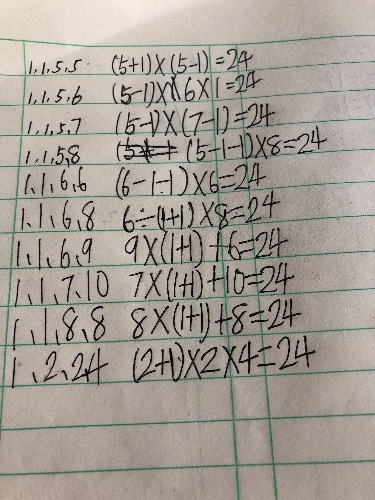 1.1.5.5 (5+1)×(5-1)=24
1.1.5.6 (5-1)×6×1=24
1.1.5.7 (5-1)×(7-1)=24
1.1.5.8 (5-1-1)×8=24
1.1.6.6 (6-1-1)×6=24
1.1.6.8 6÷(1+1)×8=24
1.1.6.9 9×(1+1)+6=24
1.1.7.10 7×(1+1)+10=24
1.1.8.8 8×(1+1)+8=24
1.2.2.4 (2+1)×2×4=24